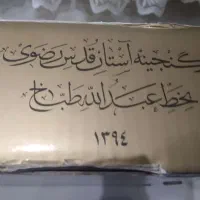 گنجینه آستان قدس رضوی
بخط عبدالله طباخ
۱۳۹۴